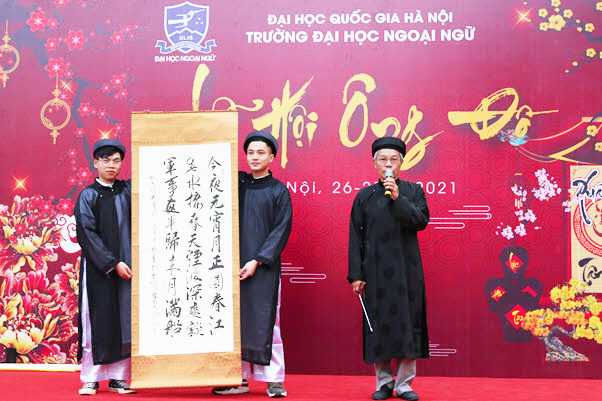 ULIS
ĐẠI HỌC NGOẠI NGỮ
ĐẠI HỌC QUỐC GIA HÀ NỘI
TRƯỜNG ĐẠI HỌC NGOẠI NGỮ
Lễ Hội Ông Đồ
Nội, 26-2 2021
今夜元宵月正圓春江
春水接春天煙波深處談
軍事夜半歸來月滿船